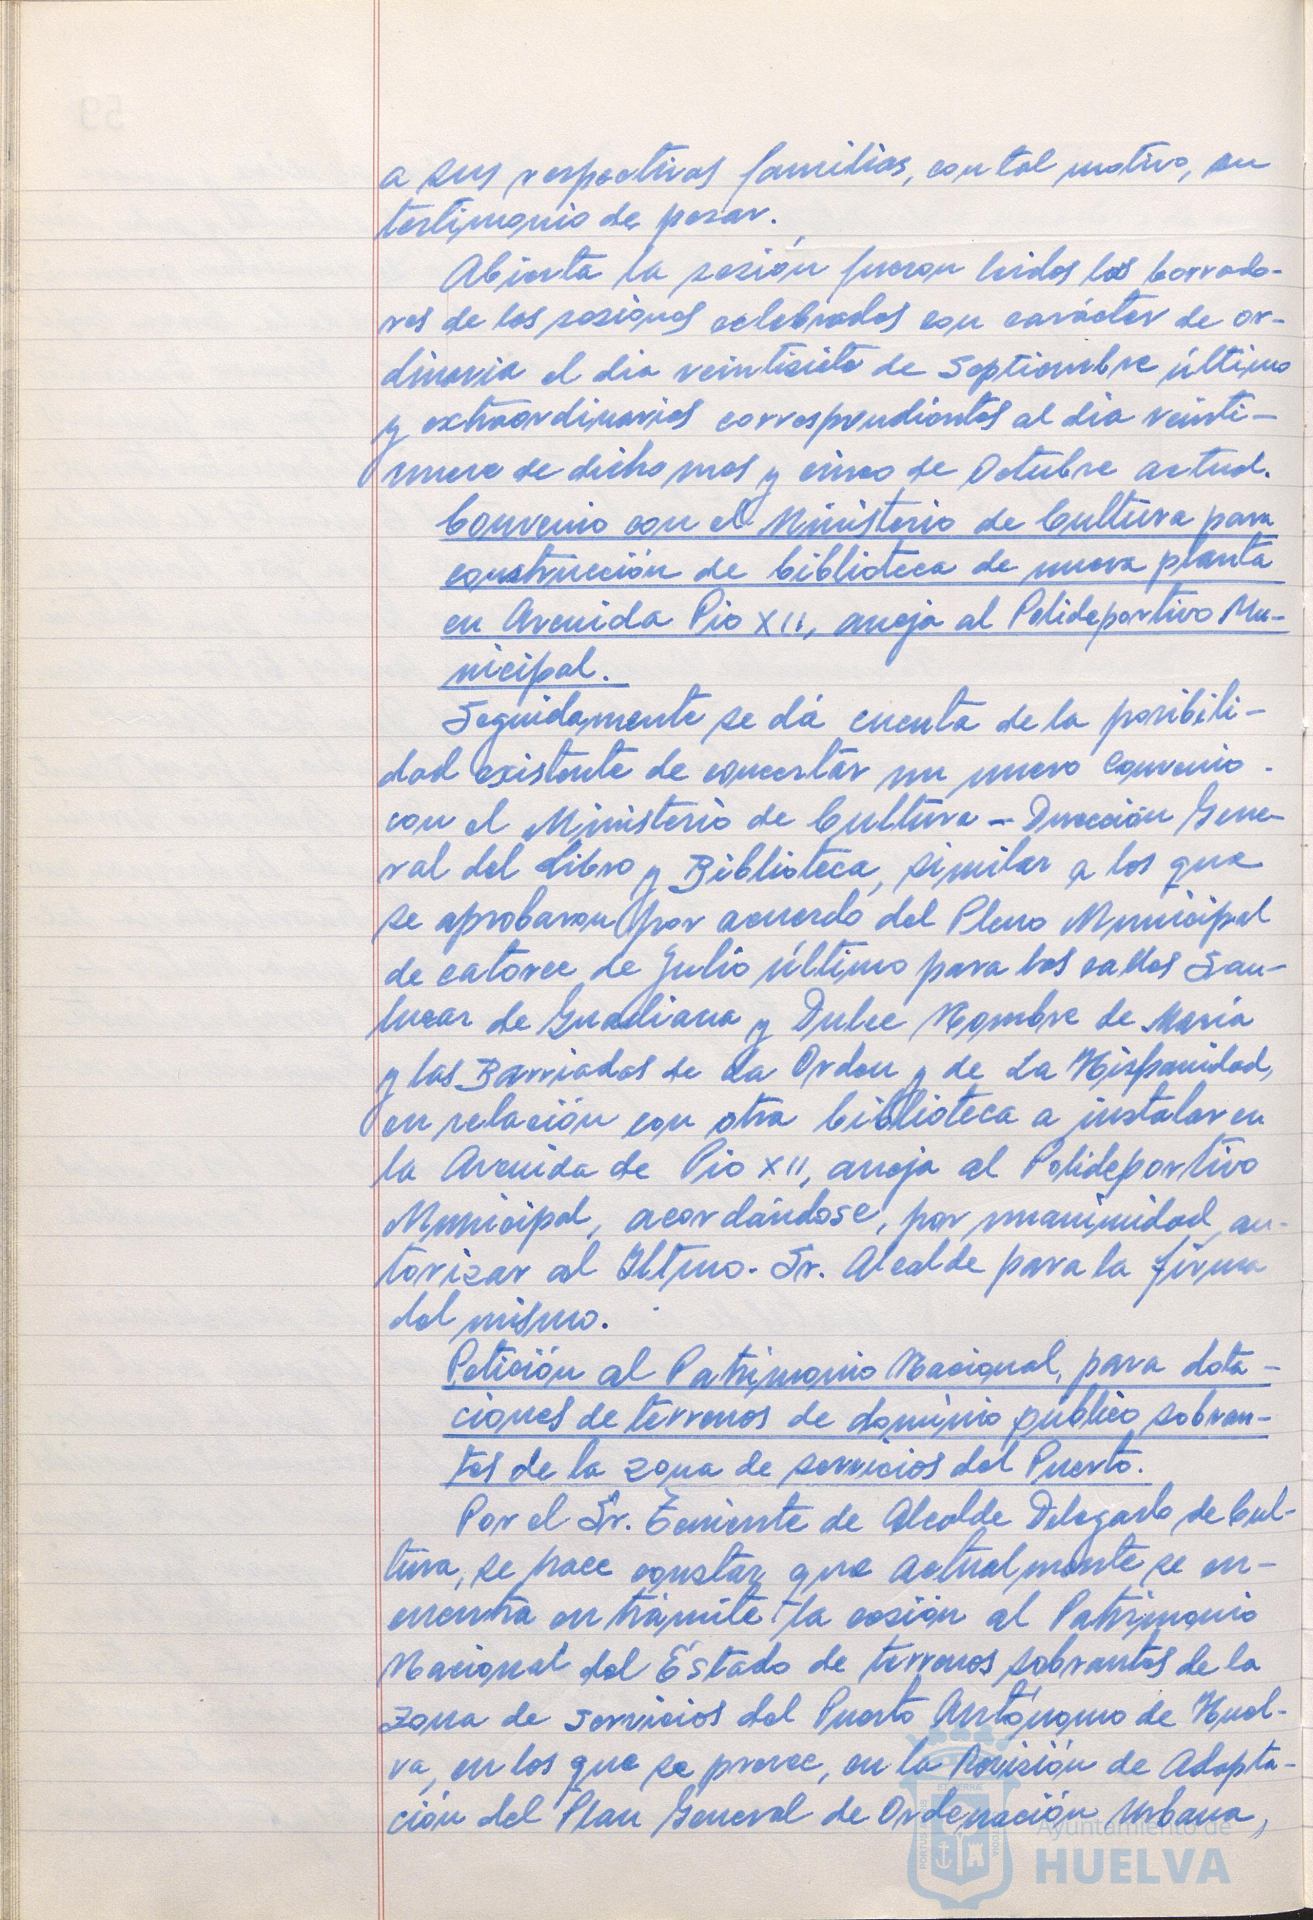 a sus respectivas familias, con tal motivo, su
testimonio de pesar.
Abierta la sesión fueron leidos los borrado-
res de las sesiones celebradas con carácter de or-
dinaria el dia veintisiete de Septiembre último
y extraordinarias correspondientes al dia veinti-
nueve de dicho mes y cinco de Octubre actual.
Convenio con el Ministerio de Cultura para
construcción de biblioteca de nueva planta
en Avenida Pio XII, aneja al Polideportivo Mu-
nicipal.
Seguidamente se dá cuenta de la posibili-
dad existente de concertar un nuevo Convenio
con el Ministerio de Cultura - Dirección Gene-
ral del Libro y Biblioteca, similar a los que
se aprobaron por acuerdo del Pleno Municipal
de catorce de Julio último para las calles San-
lucar de Guadiana y Dulce Nombre de Maria
y las Barriadas de La Orden y de La Hispanidad,
en relación con otra biblioteca a instalar en
la Avenida de Pio XII, aneja al Polideportivo
Municipal, acordándose, por unanimidad, au-
torizar al Iltmo. Sr. Alcalde para la firma
del mismo.
Petición al Patrimonio Nacional, para dota-
ciones de terrenos de dominio público sobran-
tes de la zona de servicios del Puerto.
Por el Sr. Teniente de Alcalde Delegado de Cul-
tura, se hace constar que actualmente se en-
cuentra en trámite la cesión al Patrimonio
Nacional del Estado de terrenos sobrantes de la
zona de servicios del Puerto Autónomo de Huel-
va, en los que se prevee, en la Revisión de Adapta-
ción del Plan General de Ordenación Urbana,
Ayuntamiento de
HUELVA